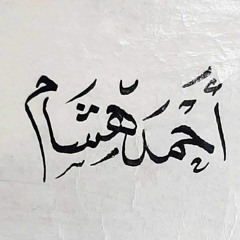 أحمد هشام